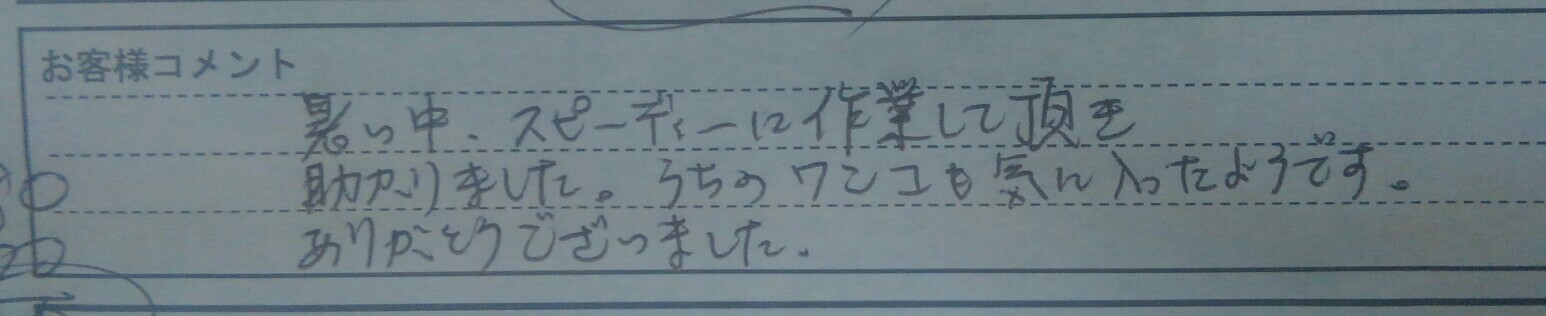 お客様コメント
暑い中、スピーディーに作業して頂き
助かりました。うちのワンコも気に入ったようです。
ありがとうございました。